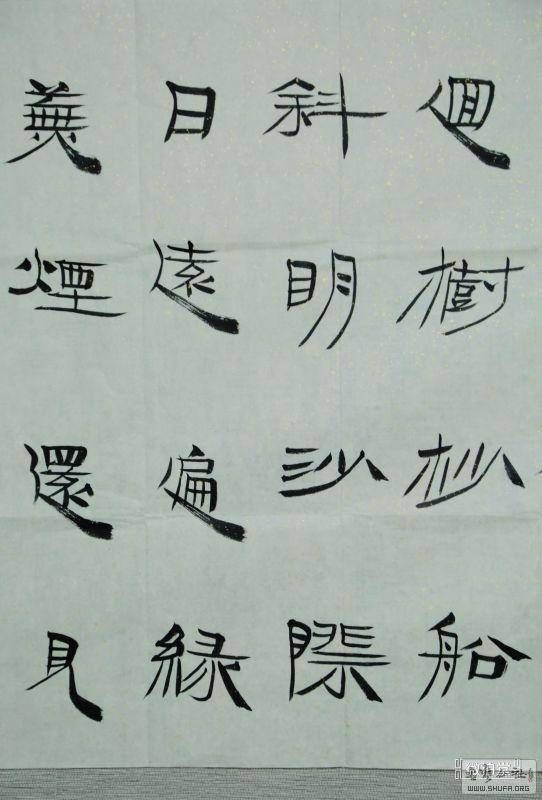 迴樹杪船
斜明沙際
日遠遍緑
蕪煙還見
WWW.SHUFA.ORG